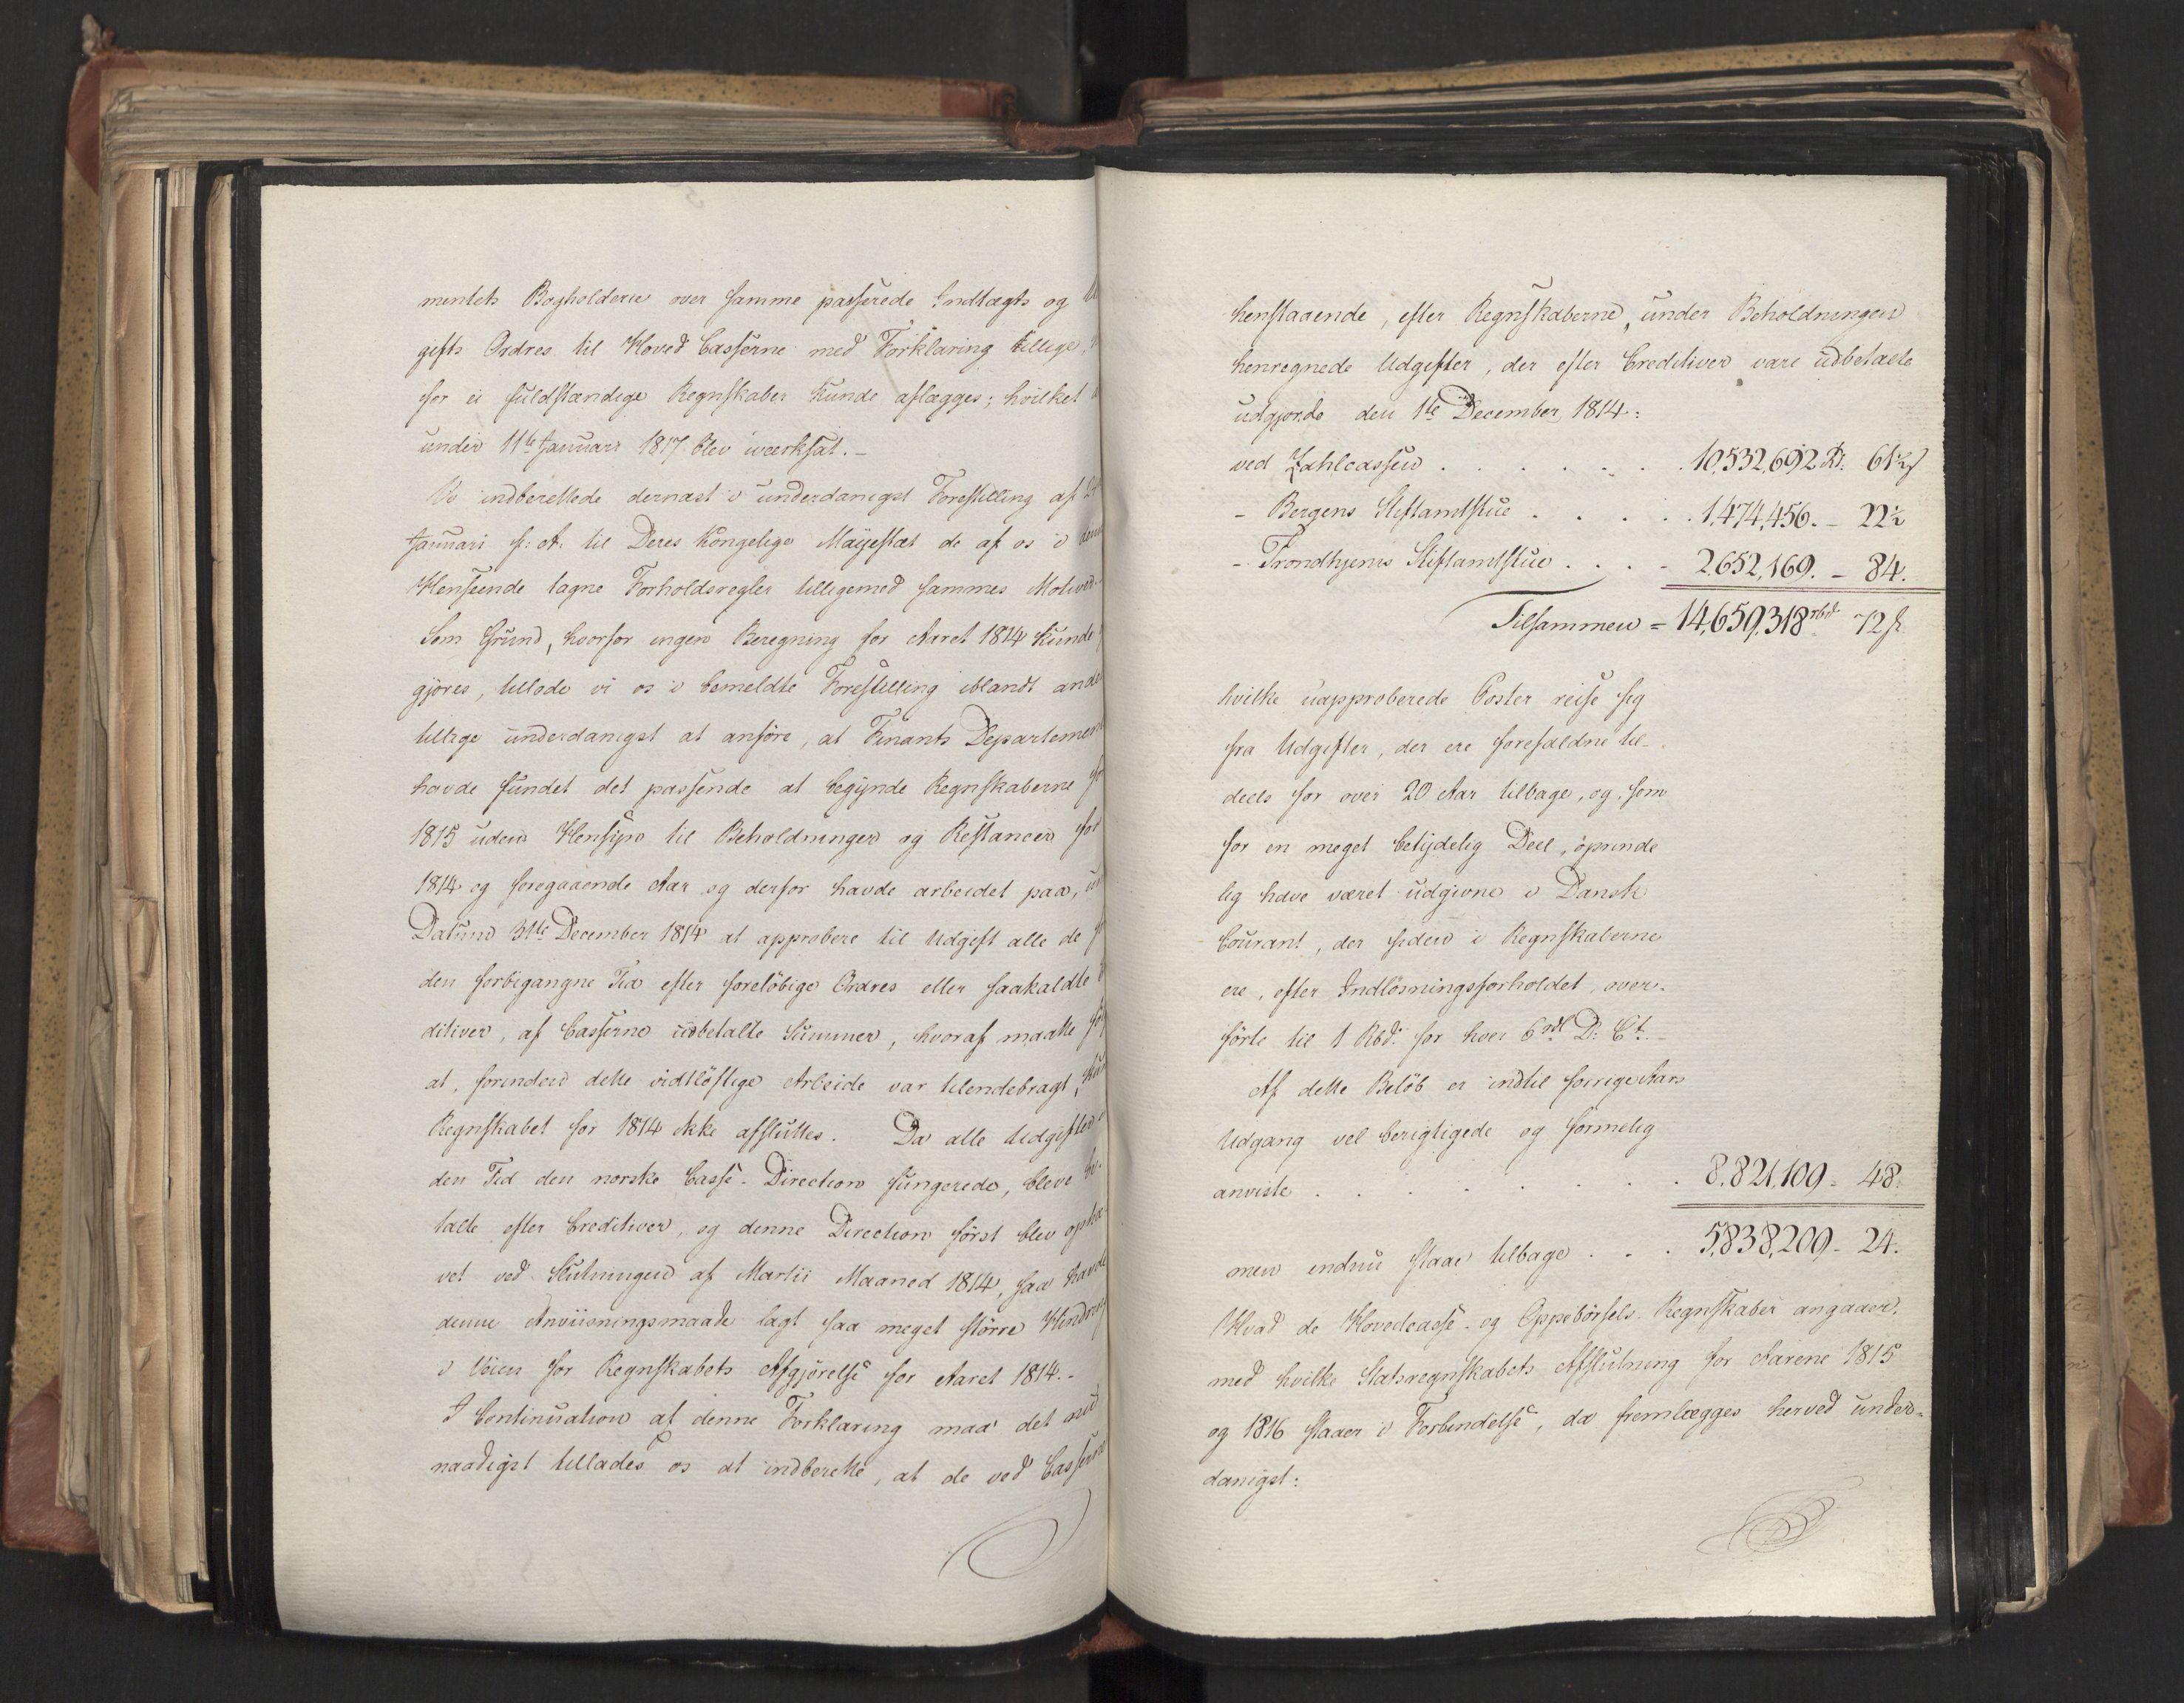 mentets Bogholderie over samme passerede Indtægts og
gifts Ordres til Hoved Casserne med Forklaring tillige,
for ei fuldstændige Regnskaber kunde aflægges; hvilket
under 11te Januari 1817 blev iværksat. –
Vi indberettede dernæst i underdanigst Forestilling af
Januari f: A: til Deres Kongelige Mayestæt de af os i
Henseende tagne Forholdsregler tilligemed sammes Motiver.
Som Grund, hvorfor ingen Beregning for Aaret 1814 kunde
gjøres, tillode vi os i bemeldte Forestilling iblandt
tillige underdanigst at anføre, at Finants Departement
havde fundet det passende at begynde Regnskaberne
1815 uden Hensyn til Beholdninger og Restancer for
1814 og foregaaende Aar og derfor havde arbeidet paa,
Datum 31te December 1814 at approbere til Udgift alle de
den forbigangne Tid efter foreløbige Ordres eller saakaldte
ditiver, af Casserne udbetalte Summer, hvoraf maatte
at, forinden dette vidtløftige Arbeide var tilendebragt,
Regnskabet for 1814 ikke afsluttes. Da alle Udgifter
den Tid den norske Casse-Direction fungerede, bleve be-
talte efter Creditiver, og denne Direction først blev ophæ-
vet ved Slutningen af Martii Maaned 1814, saa havde
denne Anviisningsmaade lagt saa meget større Hindring
i Veien for Regnskabets Afgjørelse for Aaret 1814. –
I Continuation af denne Forklaring maa det
naadigst tillades os at indberette, at de ved Casserne
henstaaende, efter Regnskaberne, under Beholdningen
henregnede Udgifter, der efter Creditiver vare udbetalte
udgjorde den 1te December 1814:
ved Zahlcassen . . . . . . 10,532,692 Rd. 61½ s
– Bergens Stiftamtstue . . . . . 1,474,456. – 22½
– Trondhjems Stiftamtstue . . . – 2,652,169. – 84.
Tilsammen = 14,659,318 rbd. 72 s.
hvilke uapproberede Poster reise sig
fra Udgifter, der ere forefaldne til-
deels for over 20 Aar tilbage, og som
for en meget betydelig Deel, oprinde
lig have været udgivne i Dansk
Courant, der siden i Regnskaberne
ere, efter Indløsningsforholdet, over-
førte til 1 Rbd. for hver 6 rdl D: Ct. –
Af dette Beløb er indtil forrige Aars
Udgang vel berigtigede og formelig
anviste . . . . . . . 8,821,109 – 48.
men endnu staae tilbage . . . 5,838,209 – 24.
Hvad de Hovedcasse- og Oppebørsels-Regnskaber angaaer,
med hvilke Statsregnskabets Afslutning for Aarene 1815
og 1816 staaer i Forbindelse, da fremlægges herved under-
danigst: